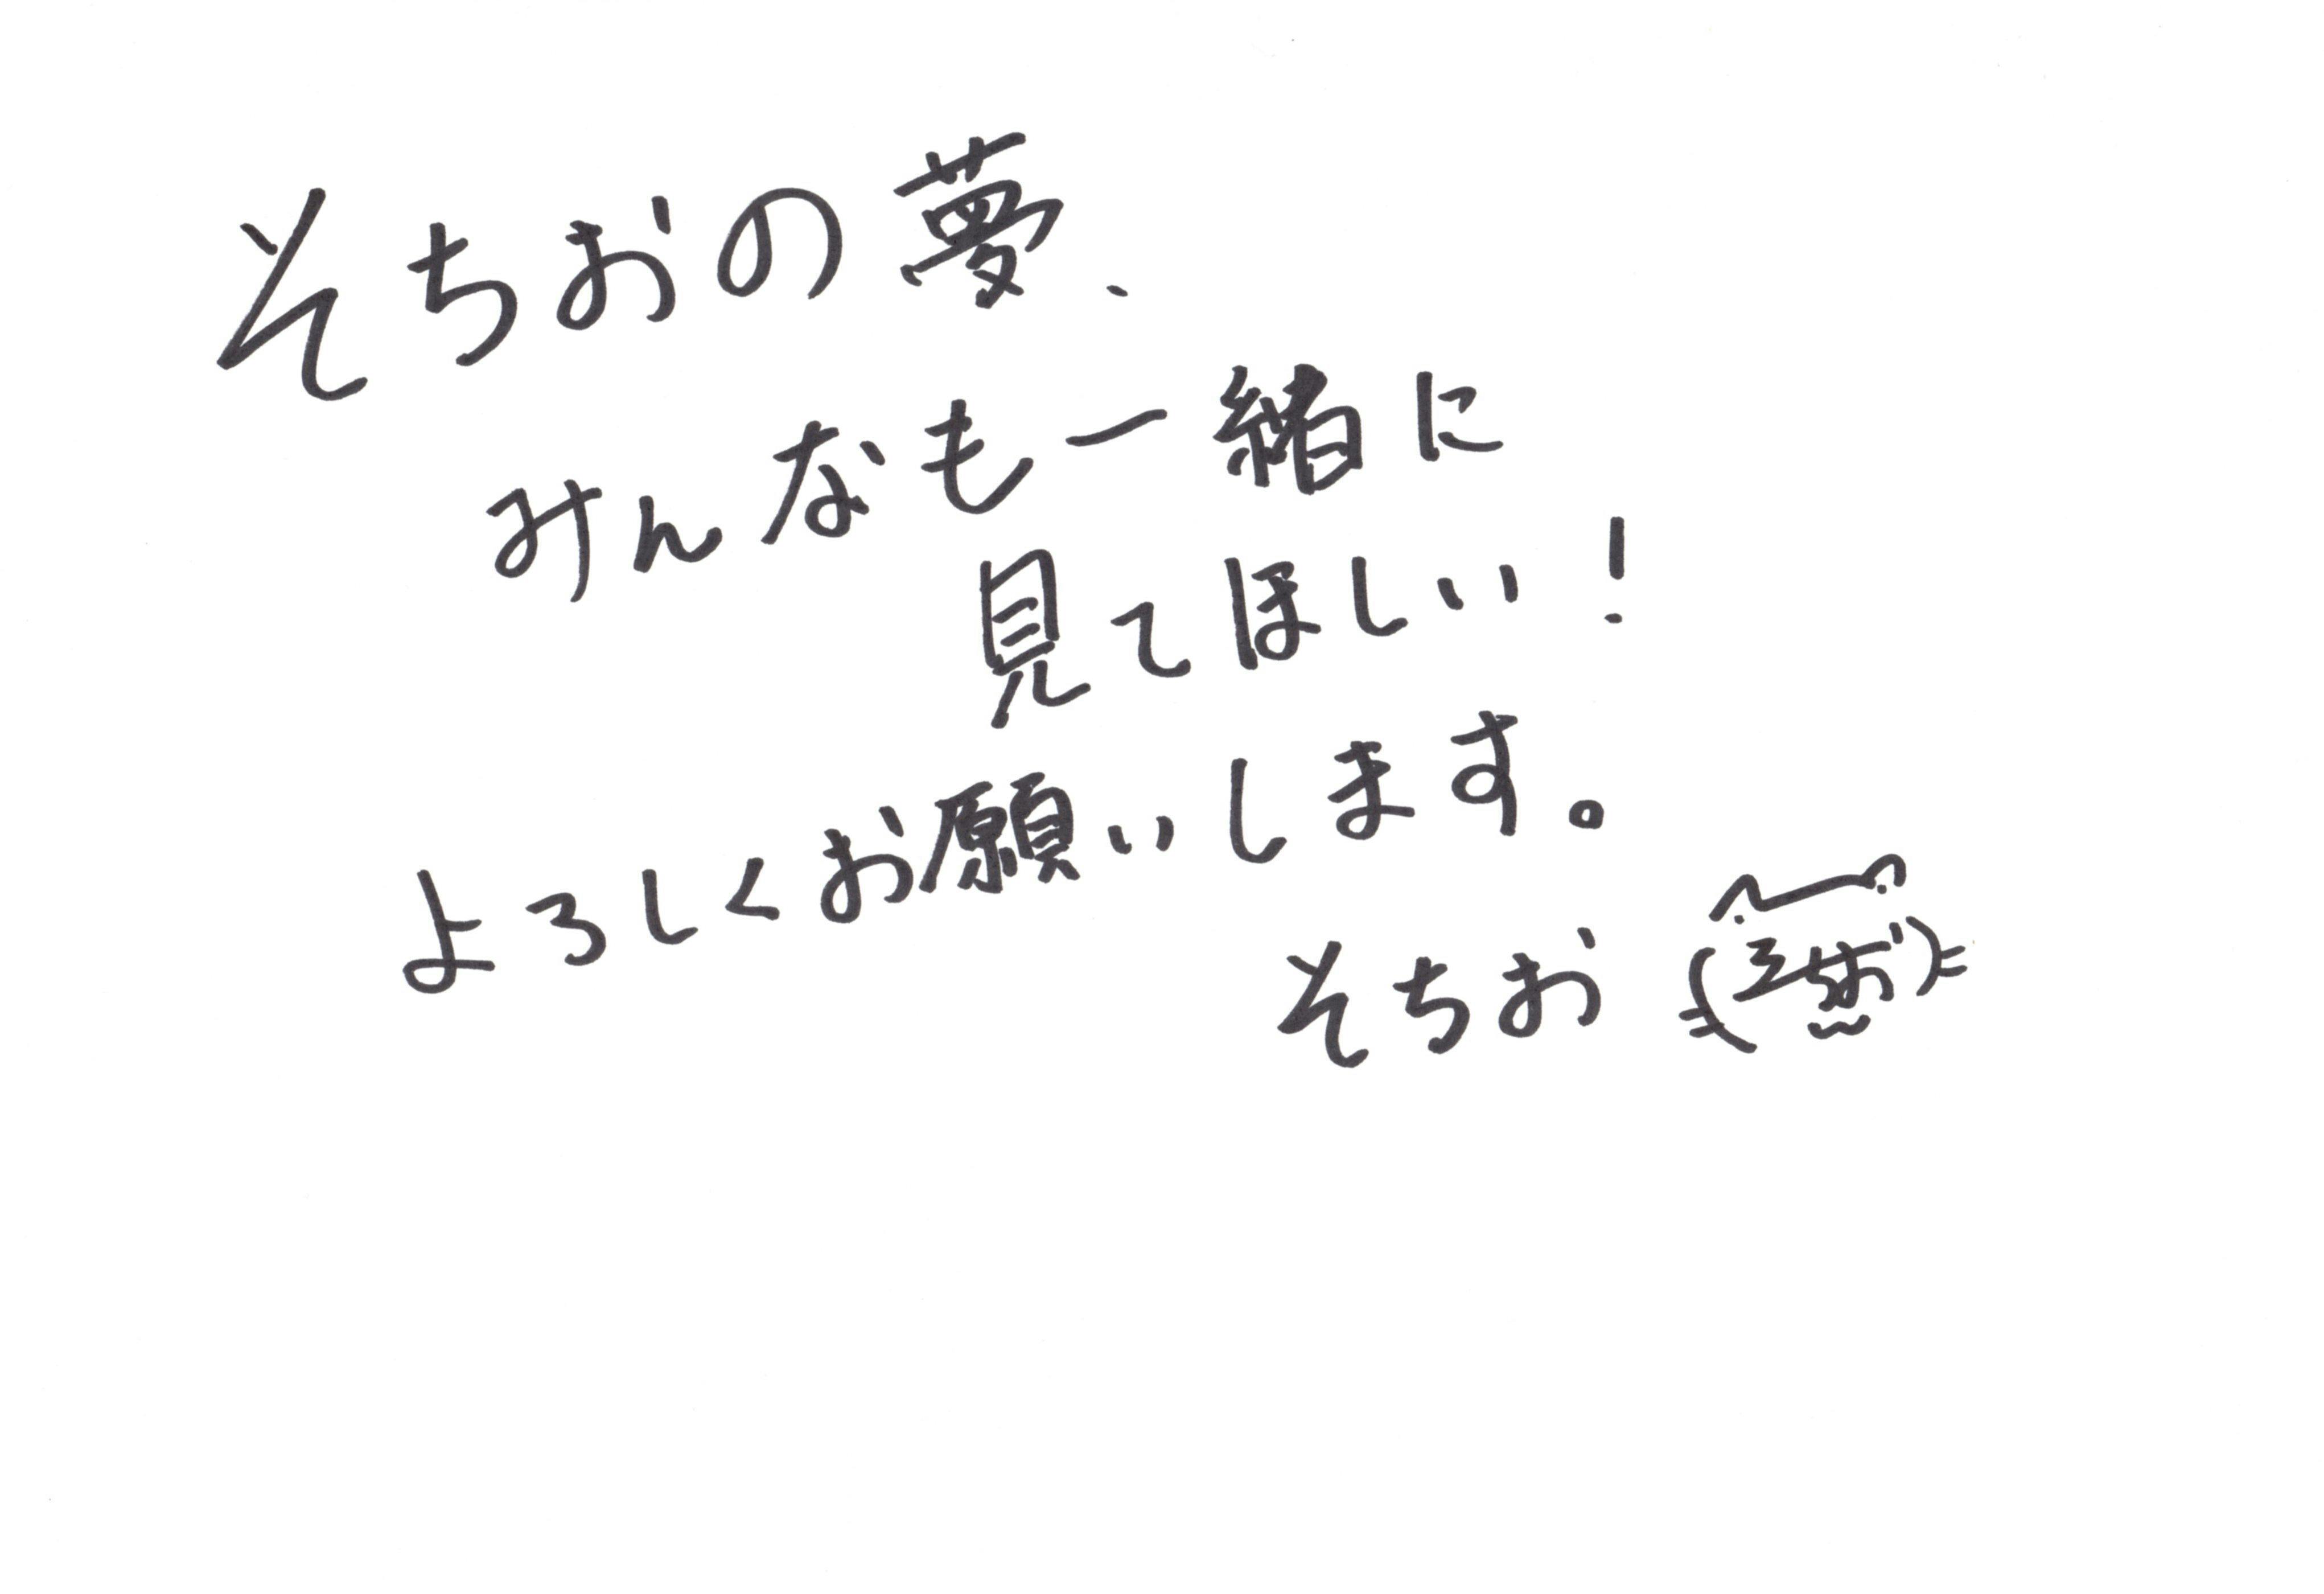 そちおの夢、
みんなも一緒に
見てほしい!
よろしくお願いします。
そちお
そちお